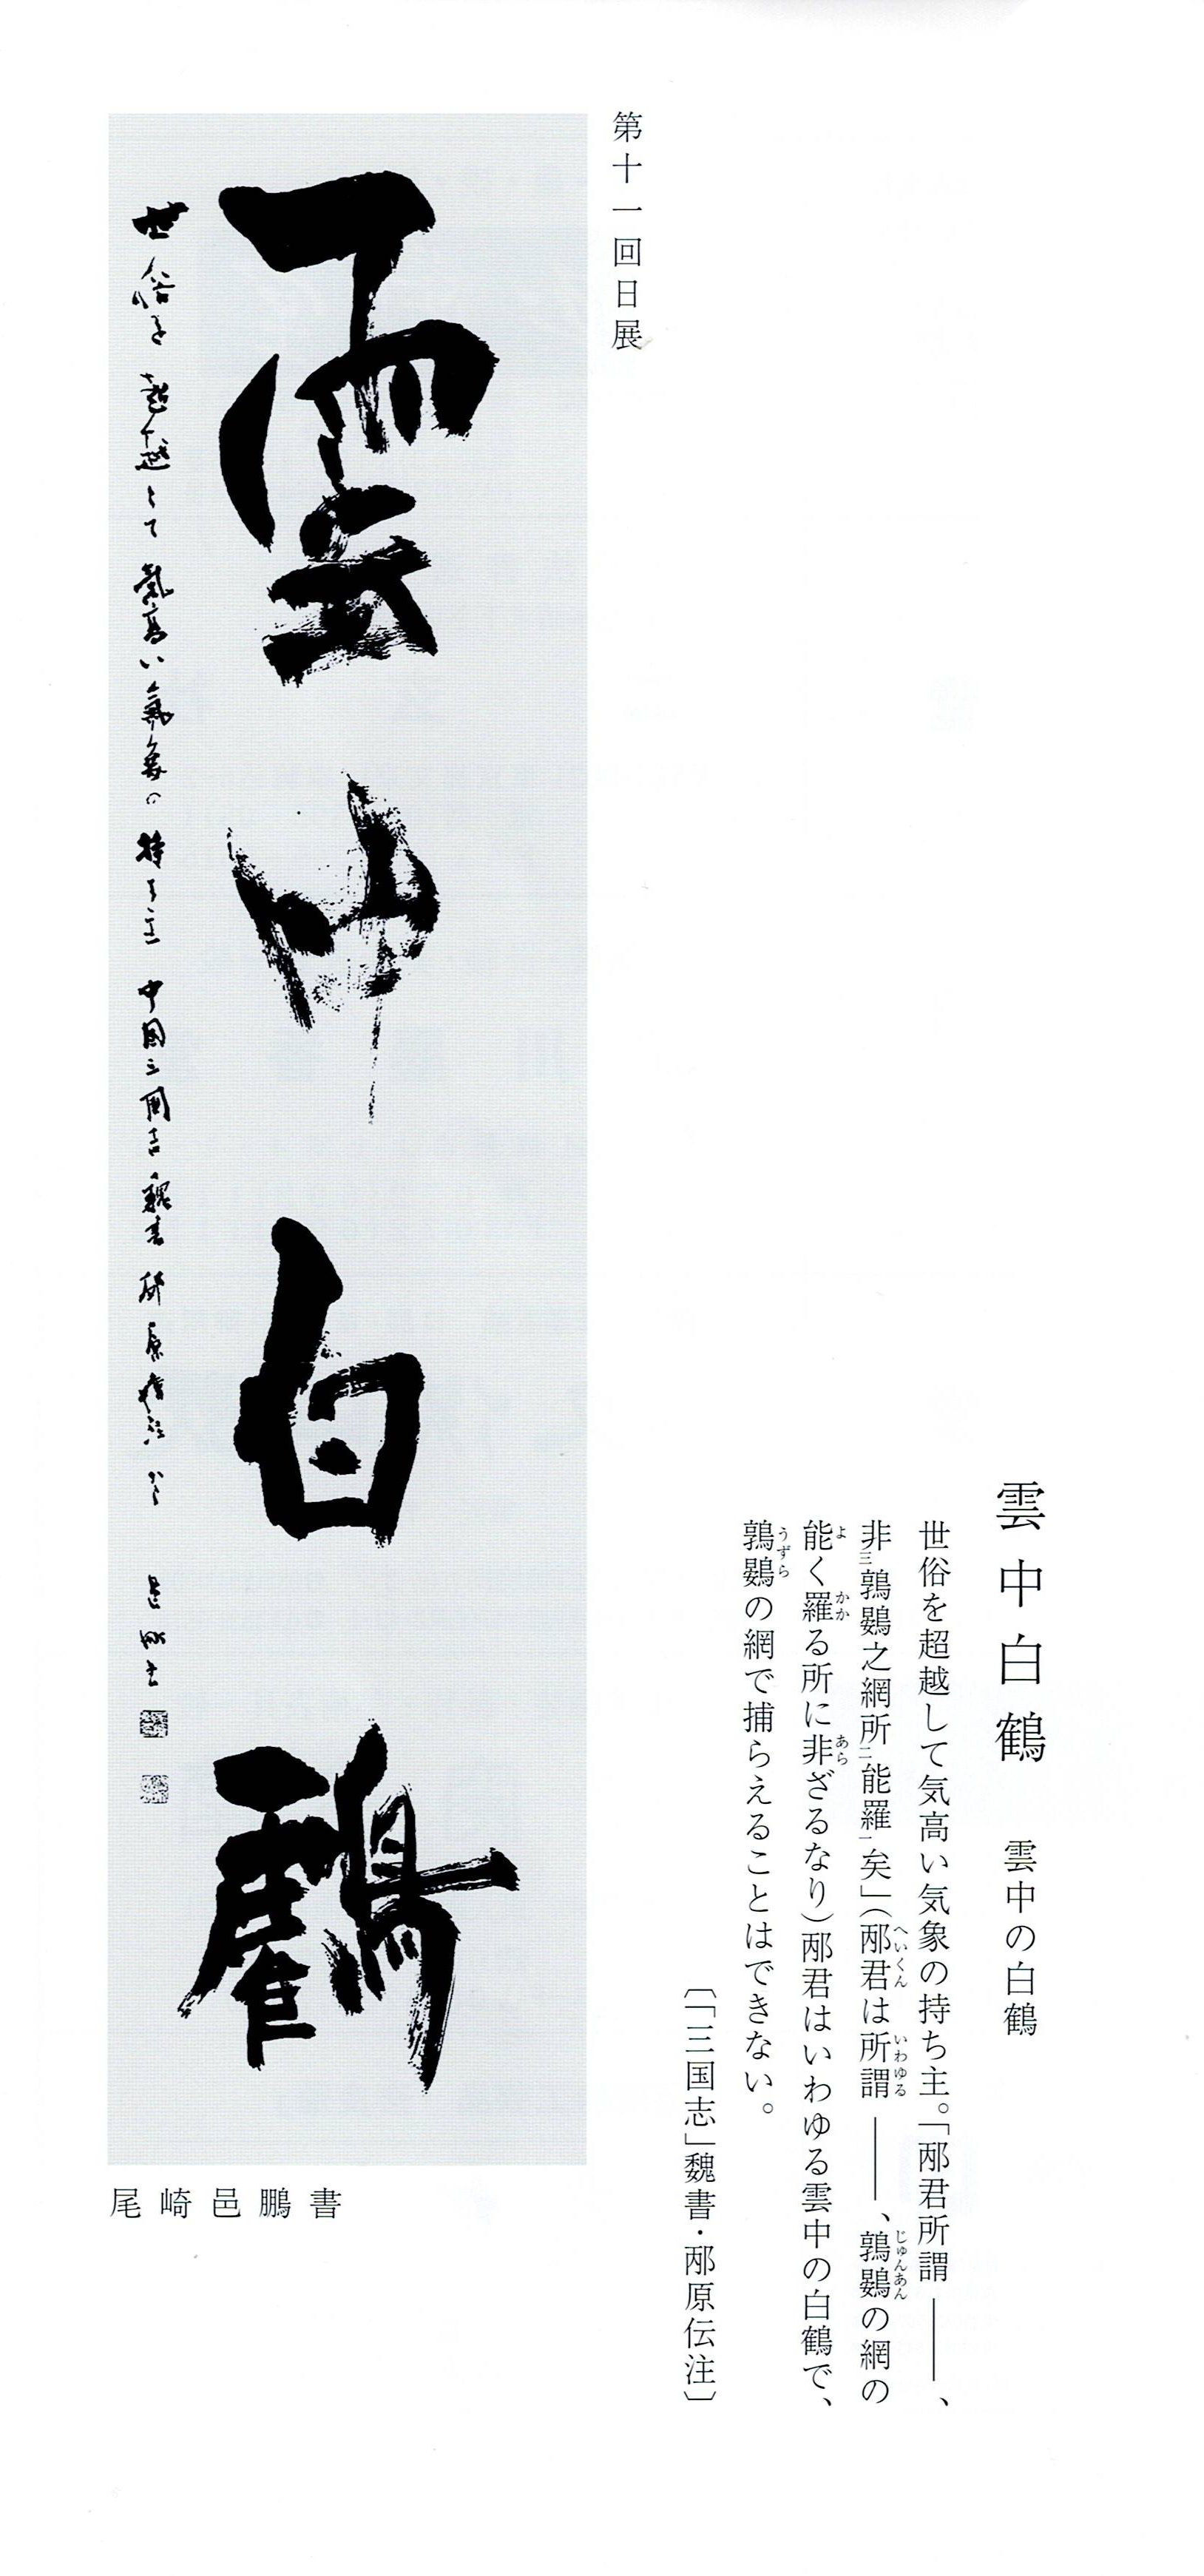 雲中白鶴　雲中の白鶴
世俗を超越して気高い気象の持ち主。「邴君所謂――、
非三鶉鷃之網所二能羅一矣」（邴君は所謂――、鶉鷃の網の
へいくん　いわゆる　じゅんあん
能く羅る所に非ざるなり）邴君はいわゆる雲中の白鶴で、
よ　かか　あら
鶉鷃の網で捕らえることはできない。
うずら
〔「三国志」魏書・邴原伝注〕
第十一回日展
雲中白鶴
世俗を超越して気高い気象の持ち主 中国三国志魏書邴原傳注から 邑鵬書
尾崎邑鵬書